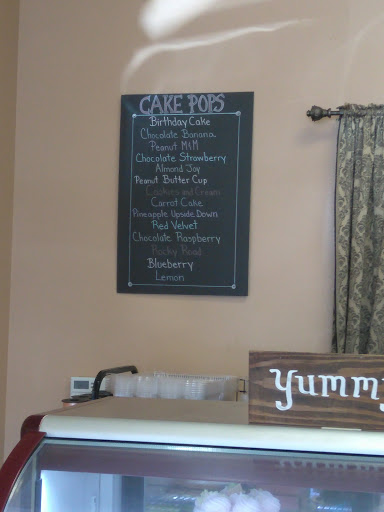 CAKE POPS
Birthday Cake
Chocolate Banana
Peanut M&M
Chocolate Strawberry
Almond Joy
Peanut Butter Cup
Cookies and Cream
Carrot Cake
Pineapple Upside Down
Red Velvet
Chocolate Raspberry
Rocky Road
Blueberry
Lemon
Yummy